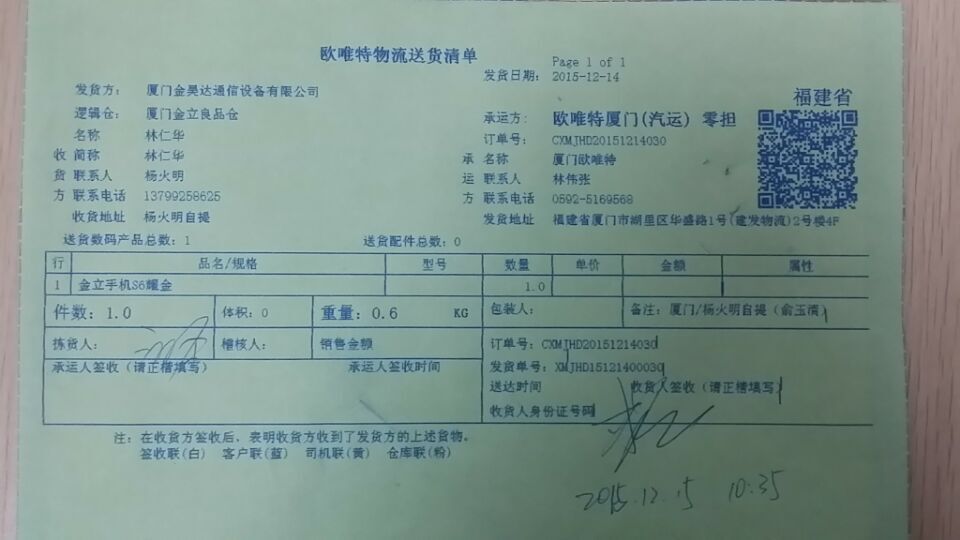 欧唯特物流送货清单
Page 1 of 1
发货日期： 2015-12-14
发货方： 厦门金昊达通信设备有限公司
福建省
逻辑仓： 厦门金立良品仓
承运方： 欧唯特厦门(汽运) 零担
名称 林仁华
订单号： CXMJHD20151214030
收 简称 林仁华
承 名称 厦门欧唯特
货 联系人 杨火明
运 联系人 林伟张
方 联系电话 13799258625
方 联系电话 0592-5169568
收货地址 杨火明自提
发货地址 福建省厦门市湖里区华盛路1号(建发物流)2号楼4F
送货数码产品总数：1 送货配件总数：0
行 品名/规格 型号 数量 单价 金额 属性
1 金立手机S6耀金 1.0
件数：1.0 体积：0 重量：0.6 KG 包装人： 备注：厦门/杨火明自提（俞玉清）
拣货人： 稽核人： 销售金额 订单号：CXMJHD20151214030
承运人签收（请正楷填写） 承运人签收时间 发货单号：XMJHD15121400030
送达时间 收货人签收（请正楷填写）
收货人身份证号码
注：在收货方签收后，表明收货方收到了发货方的上述货物。
签收联(白) 客户联(蓝) 司机联(黄) 仓库联(粉)
2015.12.15 10:35